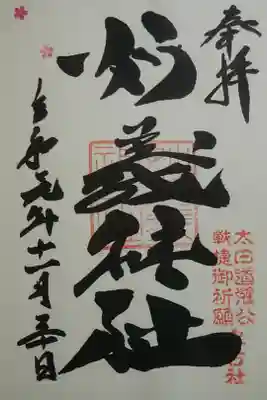 奉拝
太田道灌公
戦捷御祈願
之古社
妙義神社
令和元年十一月三十日